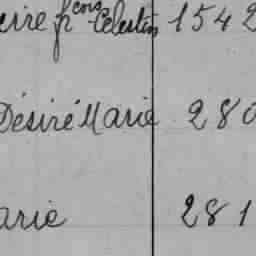 erre fcois Célestin 1542
Désiré Marie 280
arie 281